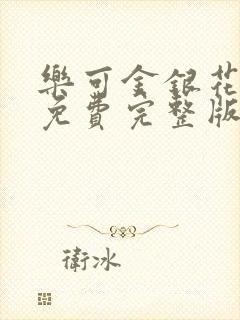 樂可金銀花
免費完整版
衛冰